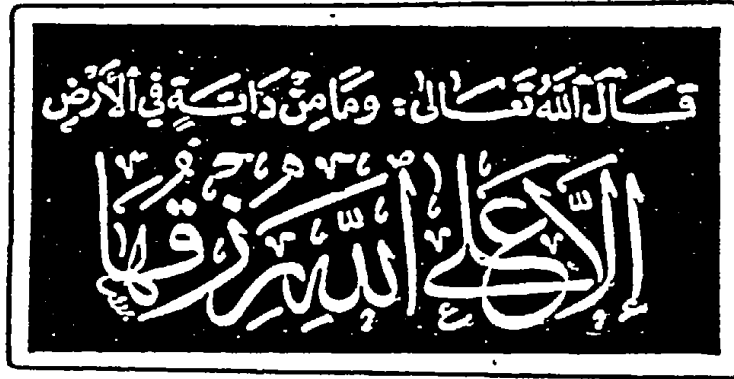 قَالَ اللهُ تَعَالىٰ: وَمَا مِنْ دَابَّةٍ فِي الْأَرْضِ
إِلَّا عَلَى اللهِ رِزْقُهَا